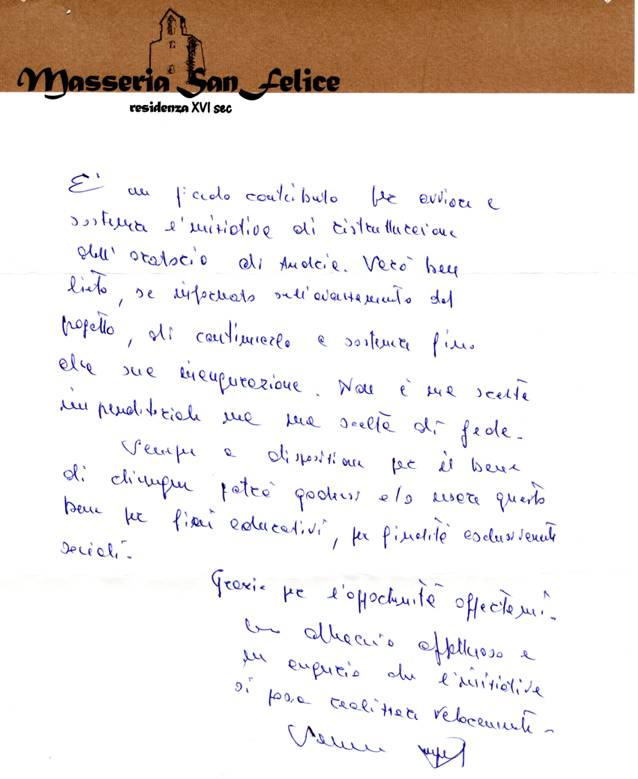 Masseria San Felice
residenza XVI sec
E' un piccolo contributo per avviare e
sostenere l'iniziativa di ristrutturazione
dell'oratorio di Andria. Sarò ben
lieto, se informato sull'avanzamento del
progetto, di continuare a sostenere fino
alla sua inaugurazione. Non è una scelta
imprenditoriale ma una scelta di fede.
Sempre a disposizione per il bene
di chiunque potrà godersi e/o usare questo
bene per fini educativi, per finalità esclusivamente
sociali.
Grazie per l'opportunità offertami.
Con abbraccio affettuoso e
un augurio che l'iniziativa
si possa realizzare velocemente.